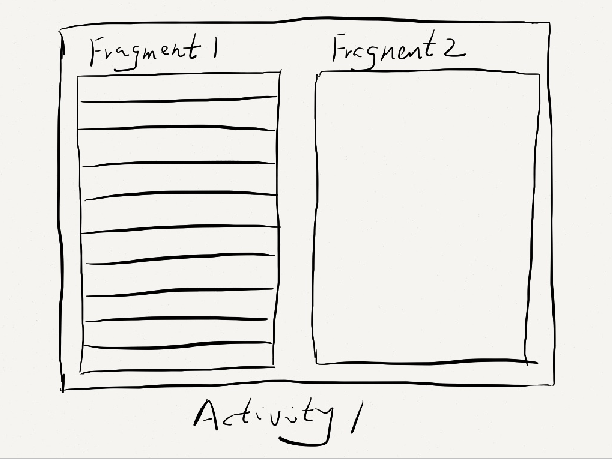 Fragment 1
Fragment 2
Activity 1